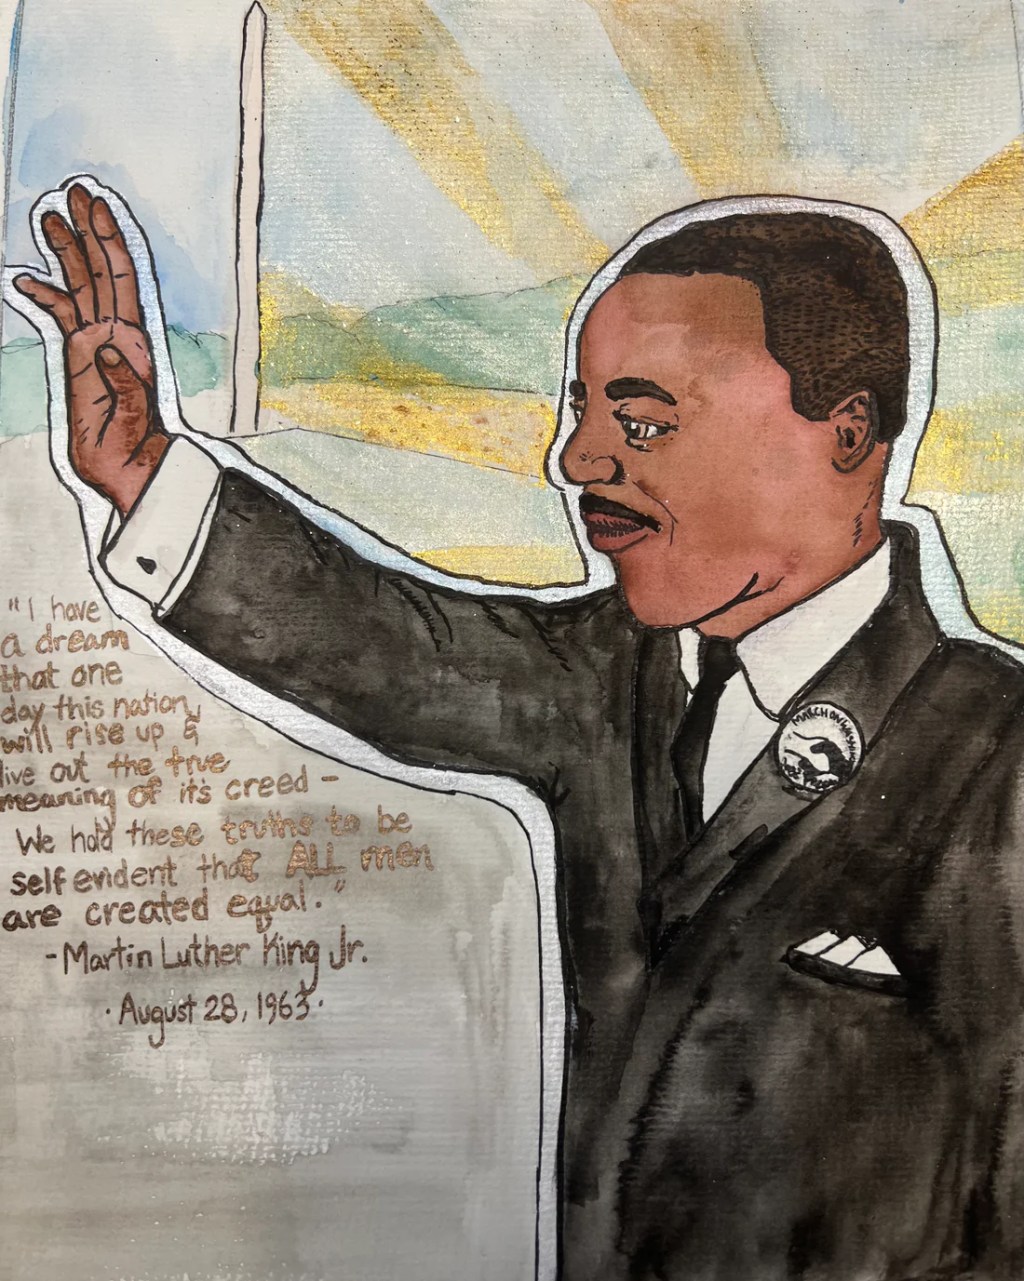 "I have
a dream
that one
day this nation
will rise up &
live out the true
meaning of its creed -
We hold these truths to be
self evident that ALL men
are created equal."
- Martin Luther King Jr.
· August 28, 1963 ·
MARCH ON WASH